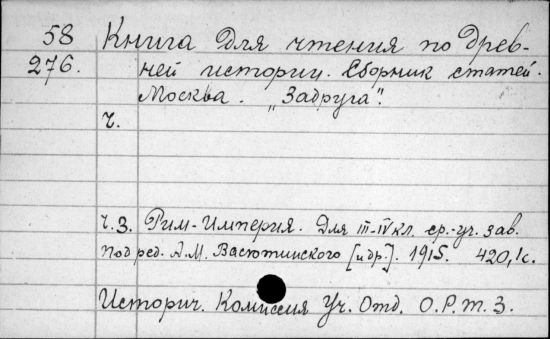 58 Книга для чтения по древ-
276. ней истории. Сборник статей.
Москва. „Задруга".
Ч.
Ч.3. Рим-Империя. Для III-IV кл. ср.-уч. зав.
Под ред. А.М. Васютинского [и др.]. 1915. 420,1с.
Историч. Комиссия Уч. Отд. О.Р.Т.З.